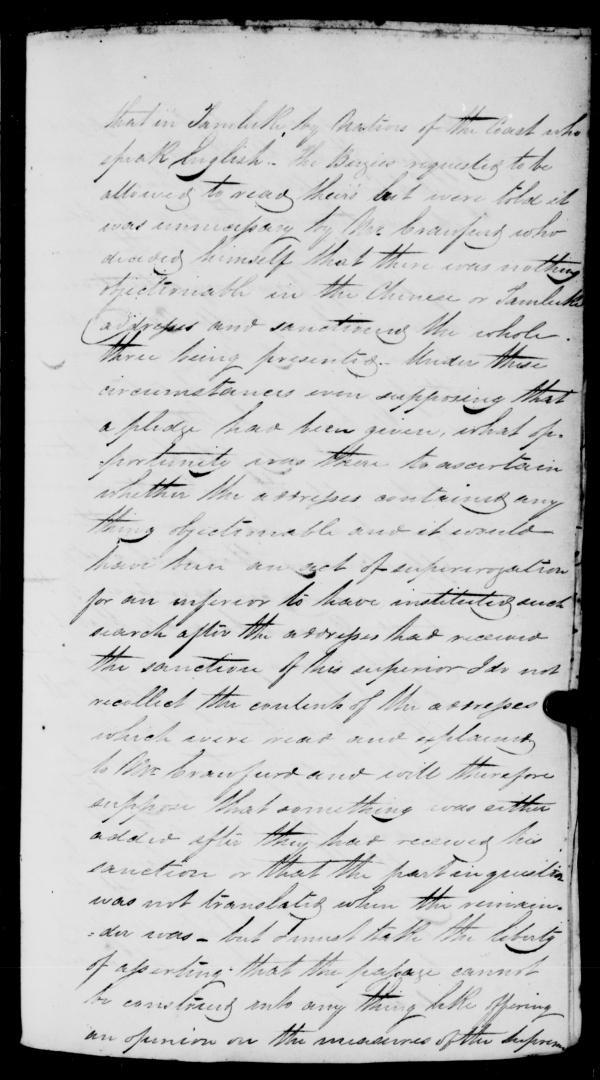 that in Tambuthe, by Natives of the Coast who
speak English - the Bugies requested to be
allowed to read theirs but were told it
was unnecessary by Mr Crawfurd who
decided himself that there was nothing
objectionable in the Chinese or
addresses and sanctioned the whole
three being presented. Under these
circumstances even supposing that
a pledge had been given, what op-
portunity was there to ascertain
whether the addresses contained any
thing objectionable and it would
have been an act of supererogation
for an inferior to have instituted such
search after the addresses had received
the sanction of his superior I do not
recollect the contents of the addresses
which were read and explained
to Mr Crawfurd and will therefore
suppose that something was either
added after they had received his
sanction or that the part in question
was not translated when the remain-
=der was - but I must take the liberty
of asserting that the passage cannot
be construed into any thing like offering
an opinion on the measures of the Supreme